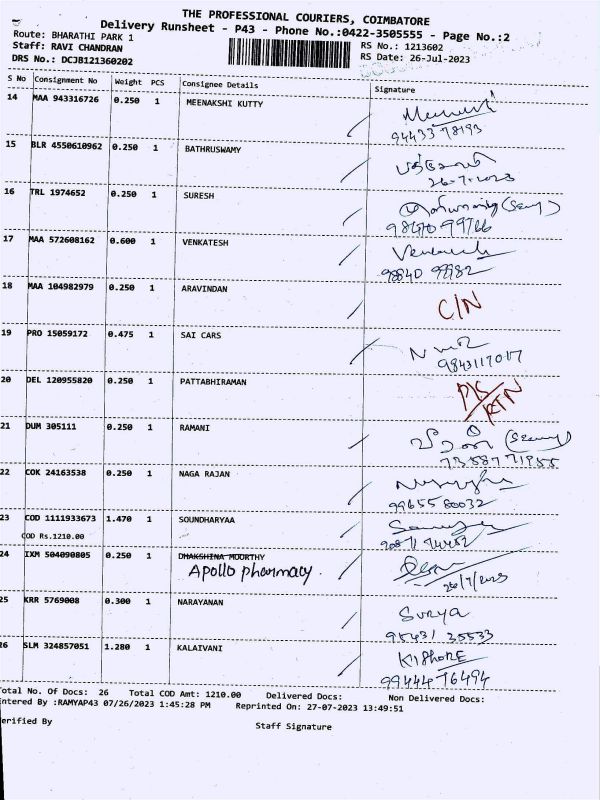 THE PROFESSIONAL COURIERS, COIMBATORE
Delivery Runsheet - P43 - Phone No.:0422-3505555 - Page No.:2
Route: BHARATHI PARK 1
Staff: RAVI CHANDRAN
RS No.: 1213602
DRS No.: DCJB121360202
RS Date: 26-Jul-2023
S No Consignment No Weight PCS Consignee Details Signature
14 MAA 943316726 0.250 1 MEENAKSHI KUTTY
94433 78193
15 BLR 4550610962 0.250 1 BATHRUSWAMY
26-7-2023
16 TRL 1974652 0.250 1 SURESH
98470 99766
17 MAA 572608162 0.600 1 VENKATESH
Venkatesh
18 MAA 104982979 0.250 1 ARAVINDAN
C/N
19 PRO 15059172 0.475 1 SAI CARS
9843117017
20 DEL 120955820 0.250 1 PATTABHIRAMAN
RTN
21 DUM 305111 0.250 1 RAMANI
73587 71955
22 COK 24163538 0.250 1 NAGA RAJAN
99655 80032
23 COD 1111933673 1.470 1 SOUNDHARYAA
COD Rs.1210.00
24 IXM 504090805 0.250 1 DHAKSHINA MOORTHY
Apollo pharmacy.
26/7/2023
25 KRR 5769008 0.300 1 NARAYANAN
Surya
95431 35533
26 SLM 324857051 1.280 1 KALAIVANI
KISHORE
99444 76494
Total No. Of Docs: 26 Total COD Amt: 1210.00 Delivered Docs: Non Delivered Docs:
Entered By :RAMYAP43 07/26/2023 1:45:28 PM Reprinted On: 27-07-2023 13:49:51
erified By
Staff Signature